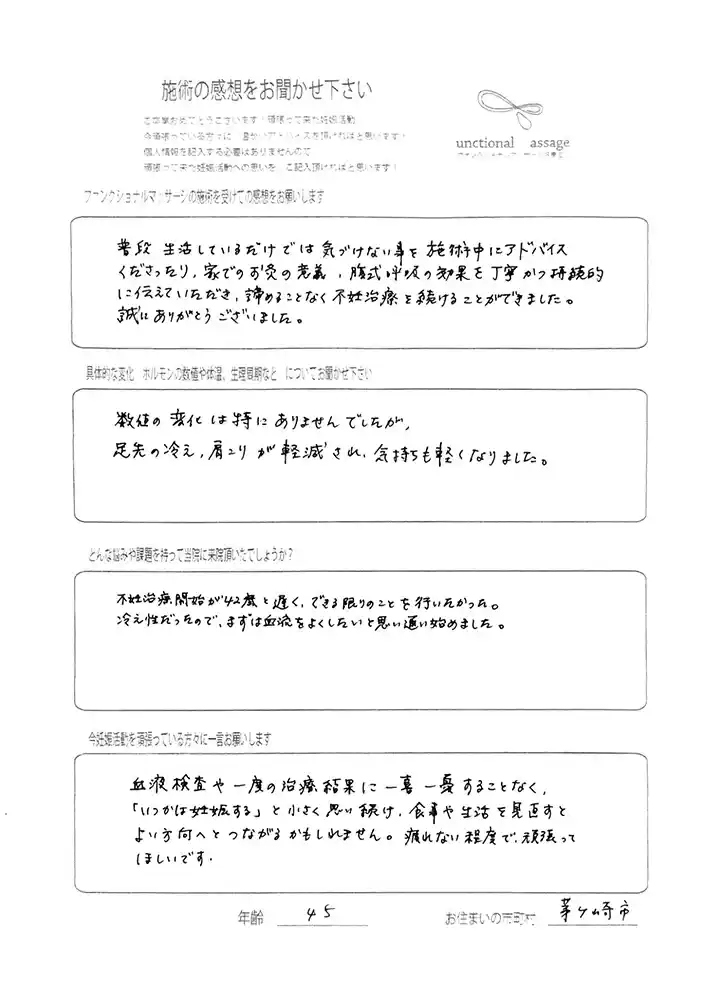 施術の感想をお聞かせ下さい
ご卒業おめでとうございます！頑張って来た妊娠活動
今頑張っている方々に 温かいアドバイスを頂ければと思います！
個人情報を記入する必要はありませんので
頑張って来た妊娠活動への思いを ご記入頂ければと思います！
unctional assage
ファンクショナルマ サージの施術を受けての感想をお願いします
普段 生活しているだけでは 気づけない事を 施術中にアドバイス
くださったり、家でのお灸の意義、腹式呼吸の効果を丁寧かつ持続的
に伝えていただき、諦めることなく不妊治療を続けることができました。
誠にありがとうございました。
具体的な変化 ホルモンの数値や体温、生理周期など についてお聞かせ下さい
数値の変化は特にありませんでしたが、
足先の冷え、肩こりが軽減され、気持ちも軽くなりました。
どんな悩みや課題を持って当院に来院頂いたでしょうか？
不妊治療開始が42歳と遅く、できる限りのことを行いたかった。
冷え性だったので、まずは血液をよくしたいと思い通い始めました。
今妊娠活動を頑張っている方々に一言お願いします
血液検査や一度の治療結果に一喜一憂することなく、
「いつかは妊娠する」と小さく思い続け、食事や生活を見直すと
よい方向へとつながるかもしれません。疲れない程度で、頑張って
ほしいです。
年齢 45 お住まいの市町村 茅ヶ崎市